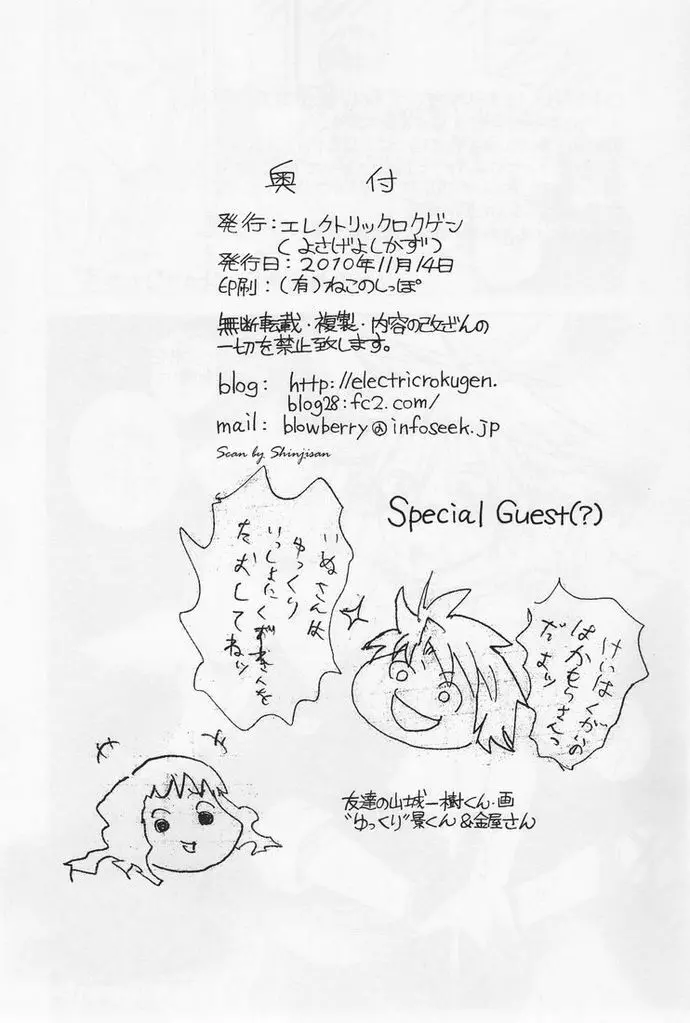 奥付
発行：エレクトリックロクゲン
（よさげよしかず）
発行日：2010年11月14日
印刷：（有）ねこのしっぽ
無断転載・複製・内容の改ざんの
一切を禁止致します。
blog: http://electricrokugen.
blog28:fc2.com/
mail: blowberry@infoseek.jp
Scan by Shinjisan
Special Guest(?)
けいはくがいの
はかもらさんっ
だよッ
いぬさんは
ゆっくり
いっしょにくずきんを
たおしてねッ
友達の山城一樹くん・画
"ゆっくり"景くん&金屋さん